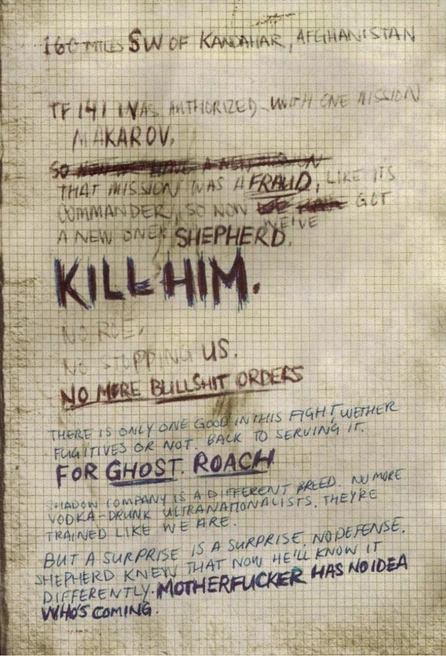 160 MILES SW OF KANDAHAR, AFGHANISTAN
TF 141 WAS AUTHORIZED WITH ONE MISSION
MAKAROV.
SO NOW WE HAVE A NEW
THAT MISSION WAS A FRAUD, LIKE ITS
COMMANDER, SO NOW WE GOT
WE'VE
A NEW ONE: SHEPHERD.
KILL HIM.
NO ROE.
NO STOPPING US.
NO MORE BULLSHIT ORDERS
THERE IS ONLY ONE GOOD IN THIS FIGHT, WETHER
FUGITIVES OR NOT. BACK TO SERVING IT.
FOR GHOST. ROACH
SHADOW COMPANY IS A DIFFERENT BREED. NO MORE
VODKA-DRUNK ULTRANATIONALISTS. THEY'RE
TRAINED LIKE WE ARE.
BUT A SURPRISE IS A SURPRISE, NO DEFENSE.
SHEPHERD KNEW THAT NOW HE'LL KNOW IT
DIFFERENTLY. MOTHERFUCKER HAS NO IDEA
WHO'S COMING.